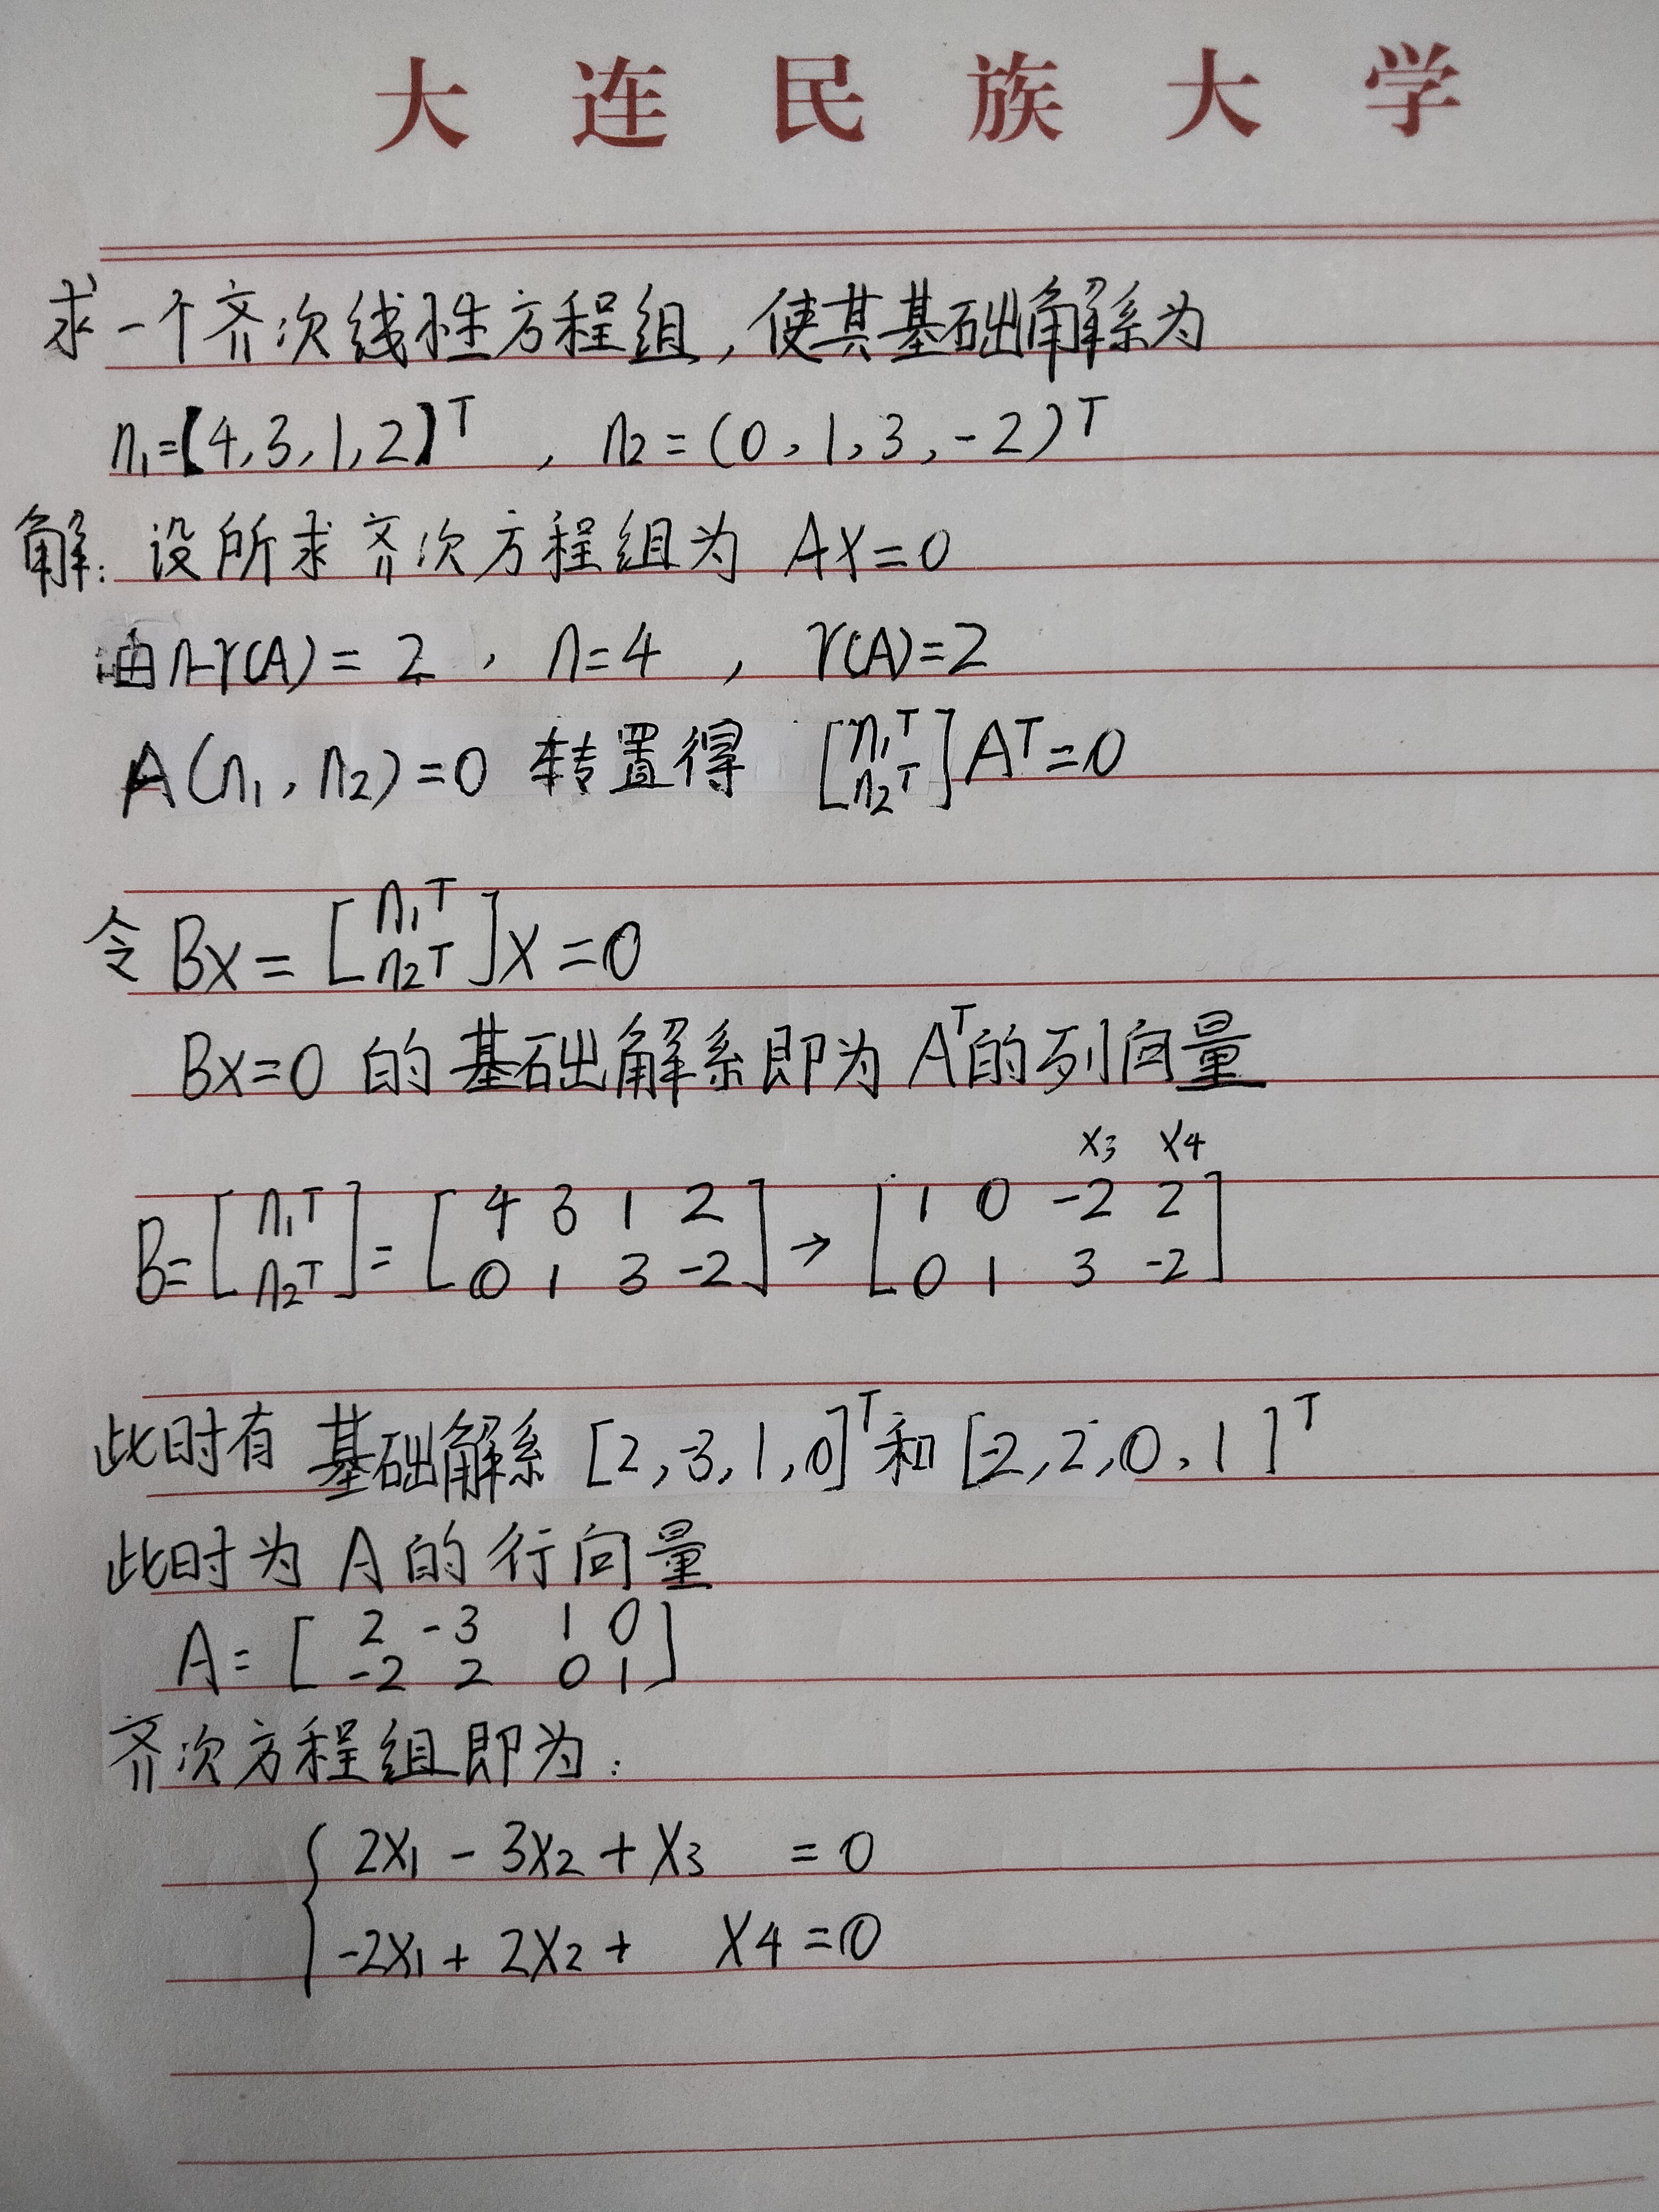 大连民族大学
求一个齐次线性方程组,使其基础解系为
n₁=【4,3,1,2】ᵀ , n₂=(0,1,3,-2)ᵀ
解:设所求齐次方程组为 AX=0
由n-r(A)=2 , n=4 , r(A)=2
A(n₁,n₂)=0 转置得 [n₁ᵀ n₂ᵀ]Aᵀ=0
令 Bx=[n₁ᵀ n₂ᵀ]x=0
Bx=0 的基础解系即为Aᵀ的列向量
x₃ x₄
B=[n₁ᵀ n₂ᵀ]=[4 3 1 2 0 1 3 -2]→[1 0 -2 2 0 1 3 -2]
此时有 基础解系 [2,-3,1,0]ᵀ和[-2,2,0,1]ᵀ
此时为 A 的行向量
A=[2 -3 1 0 -2 2 0 1]
齐次方程组即为:
{2x₁-3x₂+x₃ =0
-2x₁+2x₂+ x₄=0